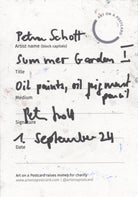 ART ON A POSTCARD
Petra Schott
Artist name (block capitals)
Summer Garden I
Title
Oil paints, oil pigment
pencil
Medium
Signature
1 September 24
Date
Art on a Postcard raises money for charity
www.artonapostcard.com | @artonapostcard